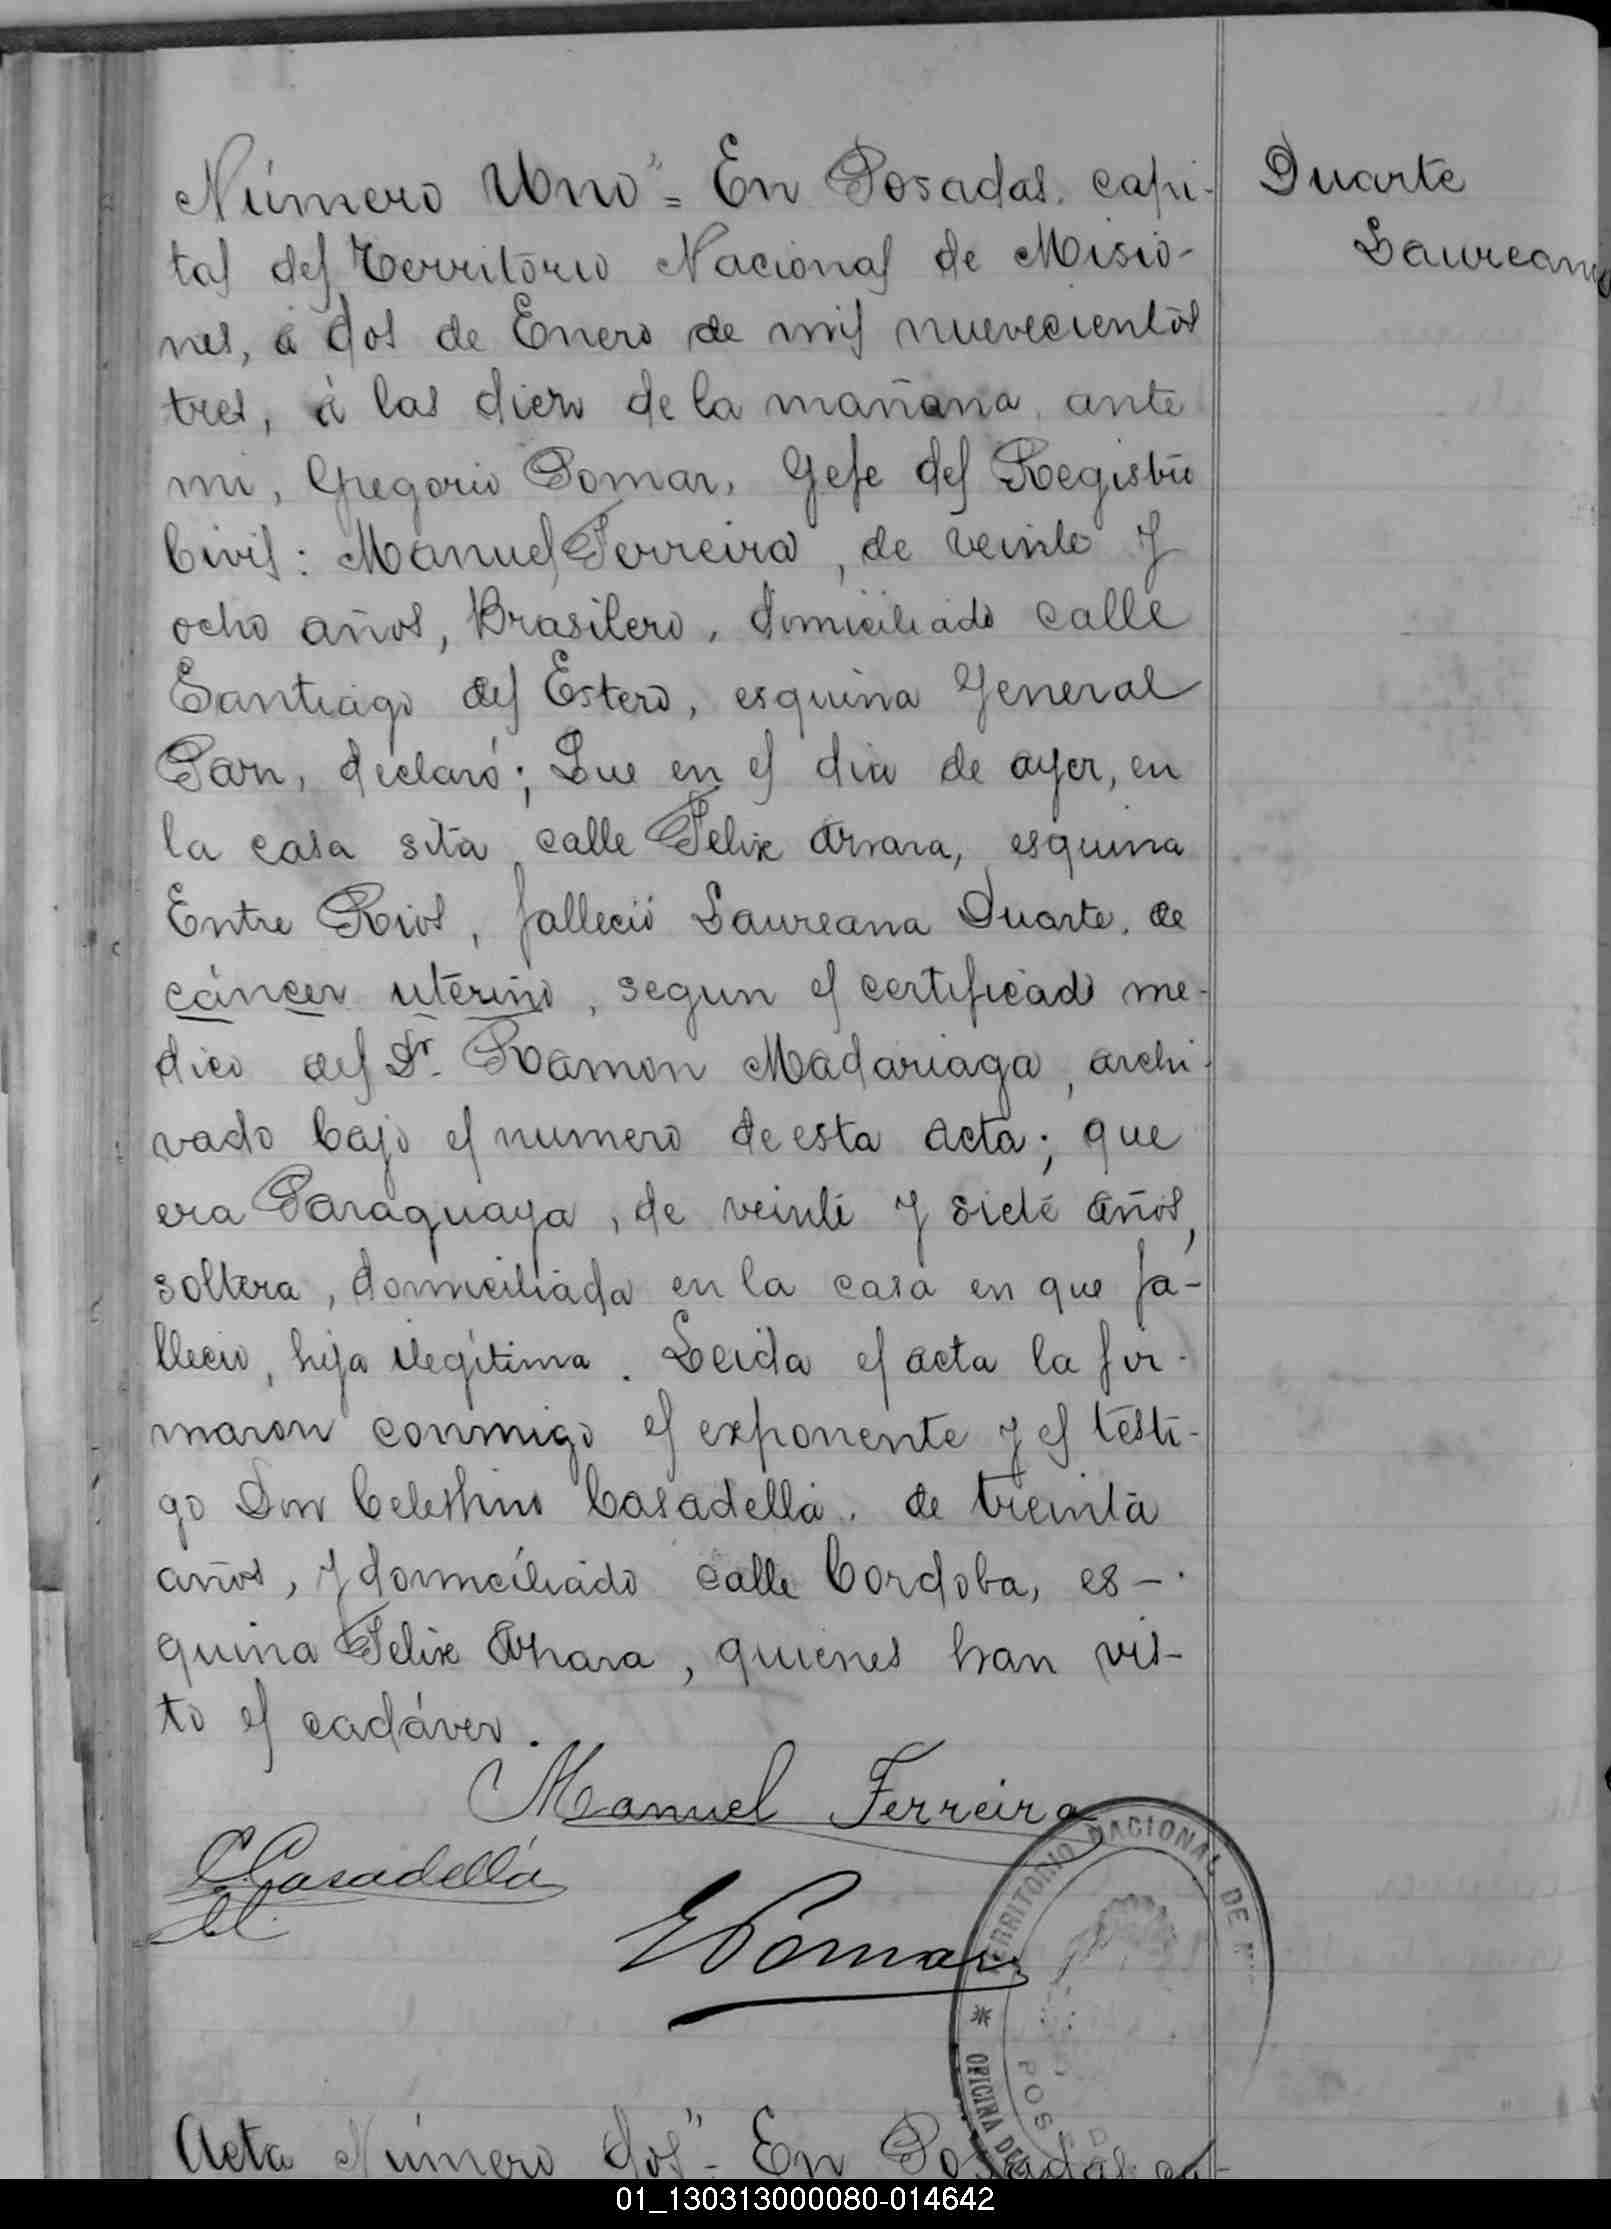 Número Uno" = En Posadas, capi-
tal del Territorio Nacional de Misio-
nes, á dos de Enero de mil nuevecientos
tres, á las diez de la mañana, ante
mi, Gregorio Pomar, Gefe del Registro
Civil: Manuel Ferreira, de veinte y
ocho años, Brasilero, domiciliado calle
Santiago del Estero, esquina General
Paz, declaró; Que en el dia de ayer, en
la casa sita calle Felix Azara, esquina
Entre Rios, falleció Laureana Duarte, de
cáncer uterino, segun el certificado me-
dico del Dr. Ramon Madariaga, archi-
vado bajo el numero de esta acta; que
era Paraguaya, de veinte y siete años,
soltera, domiciliada en la casa en que fa-
llecio, hija ilegítima. Leida el acta la fir-
maron conmigo el exponente y el testi-
go Don Celestino Casadellá, de treinta
años, y domiciliado calle Cordoba, es-
quina Felix Azara, quienes han vis-
to el cadáver.
Duarte
Laureana
Manuel Ferreira
C. Casadellá
Pomar
TERRITORIO NACIONAL DE
OFICINA DEL
POSAD
Acta Número dos" - En Posadas, ca-
01_130313000080-014642